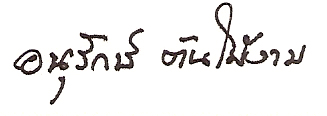 อนุรักษ์ ต้นไม้งาม